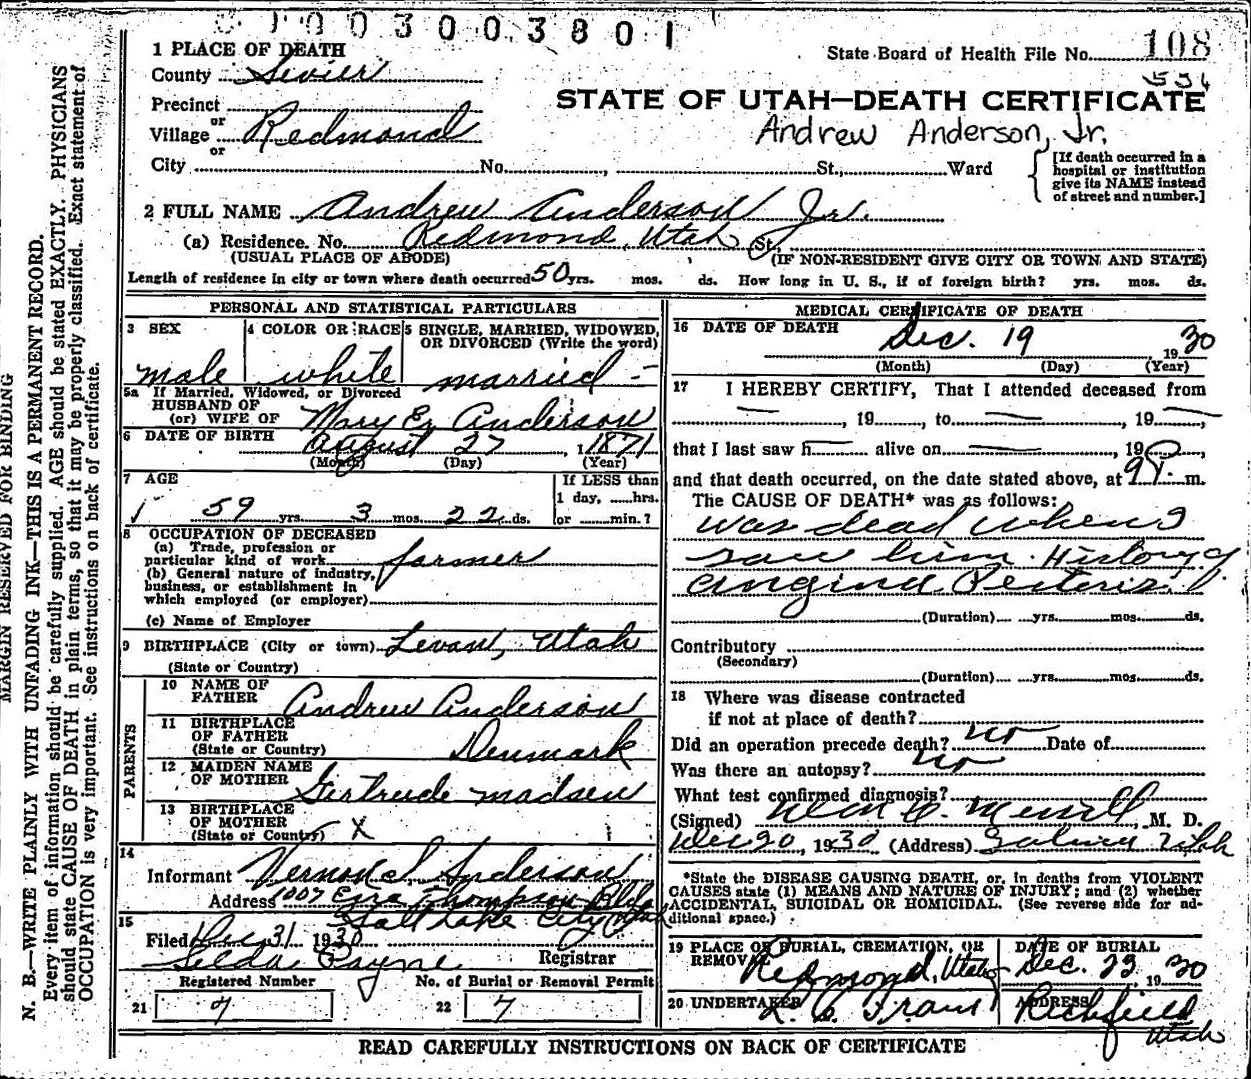 0 0 0 3 0 0 3 8 0 1
1 PLACE OF DEATH
State Board of Health File No. 108
County Sevier
STATE OF UTAH—DEATH CERTIFICATE
Precinct
or
Village Redmond
or
Andrew Anderson, Jr.
City No. , St., Ward
[If death occurred in a
hospital or institution
give its NAME instead
of street and number.]
2 FULL NAME Andrew Anderson Jr.
(a) Residence. No. Redmond, Utah St.
(USUAL PLACE OF ABODE) (IF NON-RESIDENT GIVE CITY OR TOWN AND STATE)
Length of residence in city or town where death occurred 50 yrs. mos. ds. How long in U. S., if of foreign birth? yrs. mos. ds.
PERSONAL AND STATISTICAL PARTICULARS
3 SEX
male
4 COLOR OR RACE
white
5 SINGLE, MARRIED, WIDOWED,
OR DIVORCED (Write the word)
married
5a If Married, Widowed, or Divorced
HUSBAND OF
(or) WIFE OF Mary E. Anderson
6 DATE OF BIRTH August 27, 1871
(Month) (Day) (Year)
7 AGE
59 yrs. 3 mos. 22 ds.
If LESS than
1 day, ......hrs.
or ........min.?
8 OCCUPATION OF DECEASED
(a) Trade, profession or
particular kind of work farmer
(b) General nature of industry,
business, or establishment in
which employed (or employer)
(c) Name of Employer
9 BIRTHPLACE (City or town) Levan, Utah
(State or Country)
PARENTS
10 NAME OF
FATHER Andrew Anderson
11 BIRTHPLACE
OF FATHER
(State or Country) Denmark
12 MAIDEN NAME
OF MOTHER Gertrude Madsen
13 BIRTHPLACE
OF MOTHER
(State or Country) X
14
Informant Vernon L Anderson
Address 1007 Ezra Thompson Bldg
Salt Lake City Utah
15
Filed Dec 31 1930
Selda Payne Registrar
Registered Number No. of Burial or Removal Permit
21 7 22 7
MEDICAL CERTIFICATE OF DEATH
16 DATE OF DEATH
Dec. 19 1930
(Month) (Day) (Year)
17 I HEREBY CERTIFY, That I attended deceased from
—, 19 —, to —, 19 —,
that I last saw h— alive on —, 19 ,
and that death occurred, on the date stated above, at 9 P. m.
The CAUSE OF DEATH* was as follows:
was dead when I
saw him. History of
angina Pectoris.
(Duration) yrs. mos. ds.
Contributory
(Secondary)
(Duration) yrs. mos. ds.
18 Where was disease contracted
if not at place of death?
Did an operation precede death? no Date of
Was there an autopsy? no
What test confirmed diagnosis?
(Signed) Merrill, M. D.
Dec 20, 1930 (Address) Salina Utah
*State the DISEASE CAUSING DEATH, or, in deaths from VIOLENT
CAUSES state (1) MEANS AND NATURE OF INJURY; and (2) whether
ACCIDENTAL, SUICIDAL OR HOMICIDAL. (See reverse side for ad-
ditional space.)
19 PLACE OF BURIAL, CREMATION, OR
REMOVAL
Redmond, Utah
DATE OF BURIAL
Dec. 23, 1930
20 UNDERTAKER
ADDRESS
Richfield
Utah
READ CAREFULLY INSTRUCTIONS ON BACK OF CERTIFICATE
MARGIN RESERVED FOR BINDING
N. B.—WRITE PLAINLY WITH UNFADING INK—THIS IS A PERMANENT RECORD.
Every item of information should be carefully supplied. AGE should be stated EXACTLY. PHYSICIANS
should state CAUSE OF DEATH in plain terms, so that it may be properly classified. Exact statement of
OCCUPATION is very important. See instructions on back of certificate.